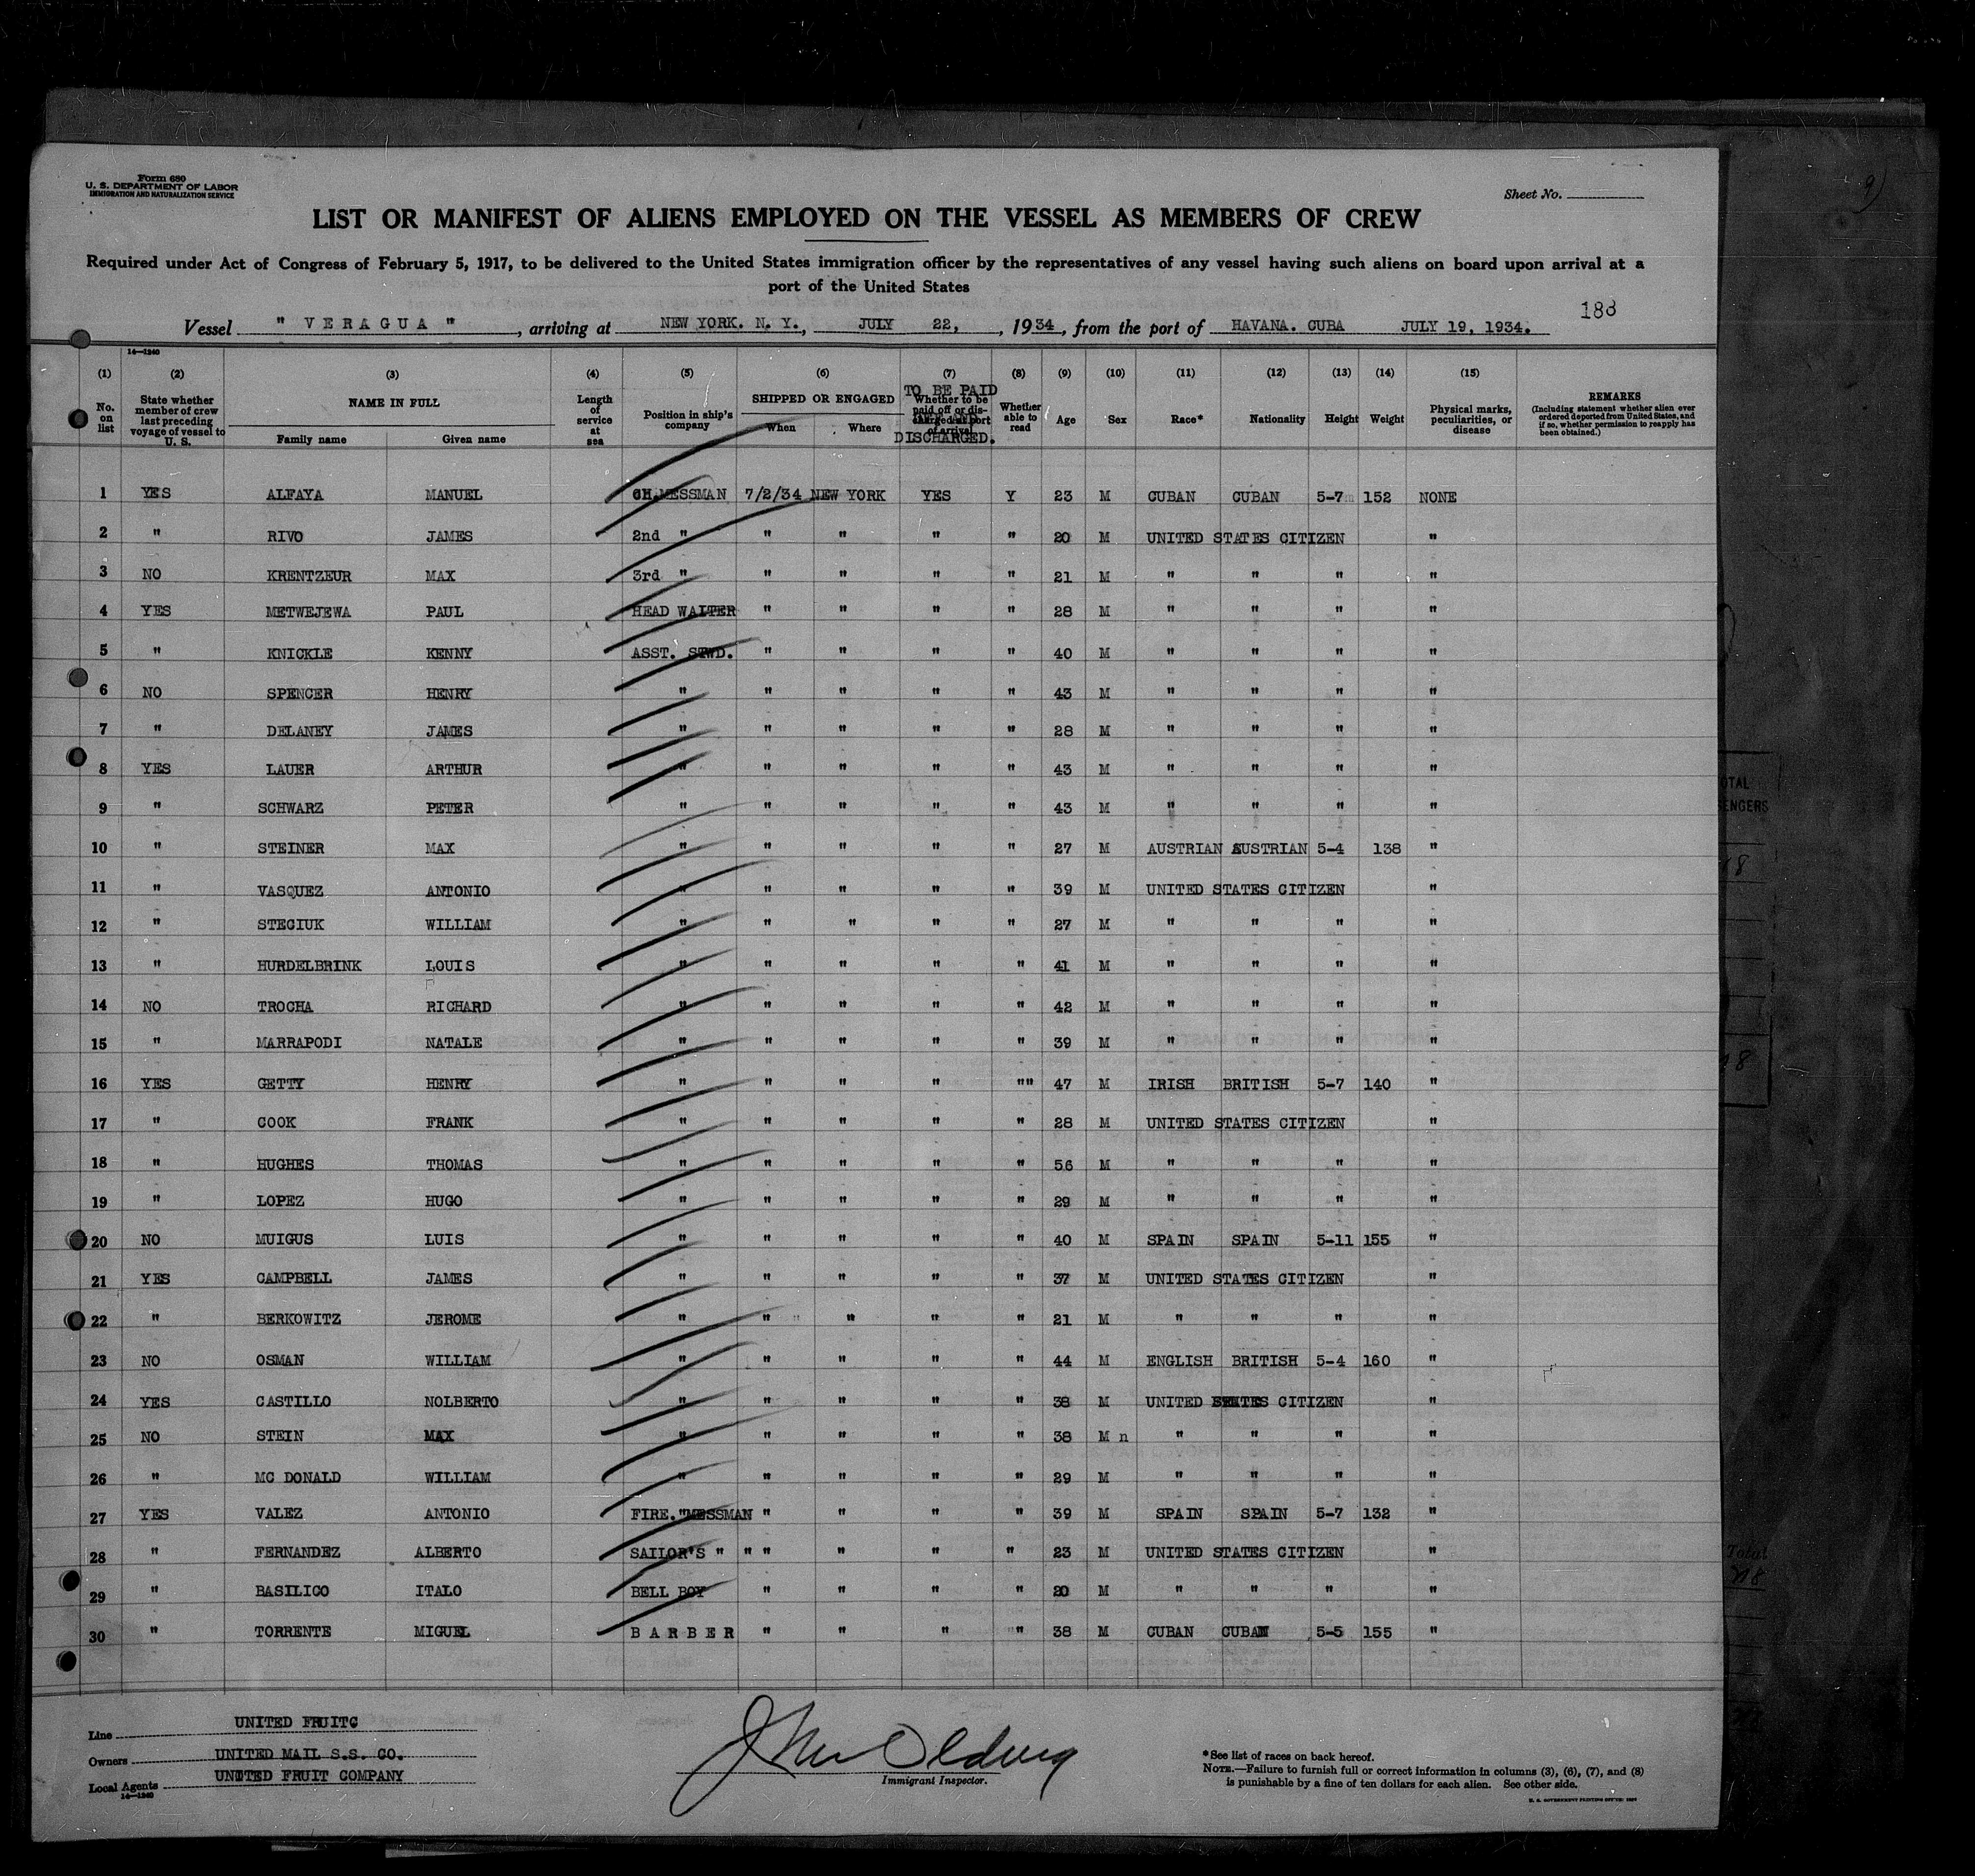 Form 680
U. S. DEPARTMENT OF LABOR
IMMIGRATION AND NATURALIZATION SERVICE
Sheet No.
LIST OR MANIFEST OF ALIENS EMPLOYED ON THE VESSEL AS MEMBERS OF CREW
Required under Act of Congress of February 5, 1917, to be delivered to the United States immigration officer by the representatives of any vessel having such aliens on board upon arrival at a
port of the United States
188
Vessel " VERAGUA ", arriving at NEW YORK. N. Y., JULY 22, , 1934, from the port of HAVANA. CUBA JULY 19, 1934.
14—1240
(1) (2) (3) (4) (5) (6) (7) (8) (9) (10) (11) (12) (13) (14) (15)
No. on list State whether member of crew last preceding voyage of vessel to U. S. NAME IN FULL Family name Given name Length of service at sea Position in ship's company SHIPPED OR ENGAGED When Where TO BE PAID Whether to be paid off or discharged at port of arrival DISCHARGED. Whether able to read Age Sex Race* Nationality Height Weight Physical marks, peculiarities, or disease REMARKS (Including statement whether alien ever ordered deported from United States, and if so, whether permission to reapply has been obtained.)
1 YES ALFAYA MANUEL CH.MESSMAN 7/2/34 NEW YORK YES Y 23 M CUBAN CUBAN 5-7 152 NONE
2 " RIVO JAMES 2nd " " " " " 20 M UNITED STATES CITIZEN "
3 NO KRENTZEUR MAX 3rd " " " " " 21 M " " " "
4 YES METWEJEWA PAUL HEAD WAITER " " " " 28 M " " " "
5 " KNICKLE KENNY ASST. STWD. " " " " 40 M " " " "
6 NO SPENCER HENRY " " " " " 43 M " " " "
7 " DELANEY JAMES " " " " " 28 M " " " "
8 YES LAUER ARTHUR " " " " " 43 M " " " "
9 " SCHWARZ PETER " " " " " 43 M " " " "
10 " STEINER MAX " " " " " 27 M AUSTRIAN AUSTRIAN 5-4 138 "
11 " VASQUEZ ANTONIO " " " " " 39 M UNITED STATES CITIZEN "
12 " STECIUK WILLIAM " " " " " 27 M " " " "
13 " HURDELBRINK LOUIS " " " " " 41 M " " " "
14 NO TROCHA RICHARD " " " " " 42 M " " " "
15 " MARRAPODI NATALE " " " " " 39 M " " " "
16 YES GETTY HENRY " " " " "" 47 M IRISH BRITISH 5-7 140 "
17 " COOK FRANK " " " " " 28 M UNITED STATES CITIZEN "
18 " HUGHES THOMAS " " " " " 56 M " " " "
19 " LOPEZ HUGO " " " " " 29 M " " " "
20 NO MUIGUS LUIS " " " " " 40 M SPAIN SPAIN 5-11 155 "
21 YES CAMPBELL JAMES " " " " " 37 M UNITED STATES CITIZEN "
22 " BERKOWITZ JEROME " " " " " 21 M " " " "
23 NO OSMAN WILLIAM " " " " " 44 M ENGLISH BRITISH 5-4 160 "
24 YES CASTILLO NOLBERTO " " " " " 38 M UNITED STATES CITIZEN "
25 NO STEIN MAX " " " " " 38 M n " " " "
26 " MC DONALD WILLIAM " " " " " 29 M " " " "
27 YES VALEZ ANTONIO FIRE."MESSMAN " " " " 39 M SPAIN SPAIN 5-7 132 "
28 " FERNANDEZ ALBERTO SAILOR'S " " " " " " 23 M UNITED STATES CITIZEN "
29 " BASILICO ITALO BELL BOY " " " " 20 M " " " "
30 " TORRENTE MIGUEL BARBER " " " " 38 M CUBAN CUBAN 5-5 155 "
Line UNITED FRUITC
Owners UNITED MAIL S.S. CO.
Local Agents UNITED FRUIT COMPANY
14—1240
Immigrant Inspector.
*See list of races on back hereof.
NOTE.—Failure to furnish full or correct information in columns (3), (6), (7), and (8)
is punishable by a fine of ten dollars for each alien. See other side.
Total